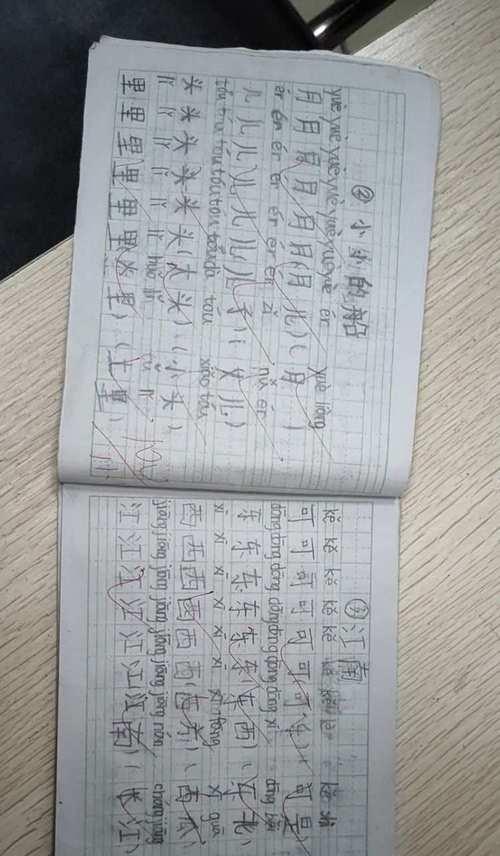 ② 小小的船
yuè yuè yuè yuè yuè yuè yuè ér yuè liàng
月月月月月月(月儿)(月 )
ér ér ér ér ér ér ér zi nǚ ér
儿儿儿儿儿儿(儿子)(女儿)
tóu tóu tóu tóu tóu tóu dà tóu xiǎo tóu
头头头头头头(大头)(小头)
lǐ lǐ lǐ lǐ lǐ lǐ
里里里里里里
③ 江南
kě kě kě kě kě kě kě
可可可可可可 可是
dōng dōng dōng dōng dōng dōng dōng xi
东东东东东东(东西)(东北)
xi xi xi xi xi xi xi guā
西西西西西西 (西瓜)
jiāng jiāng jiāng jiāng jiāng jiāng jiāng nán cháng jiāng
江江江江江江(江南)(长江)